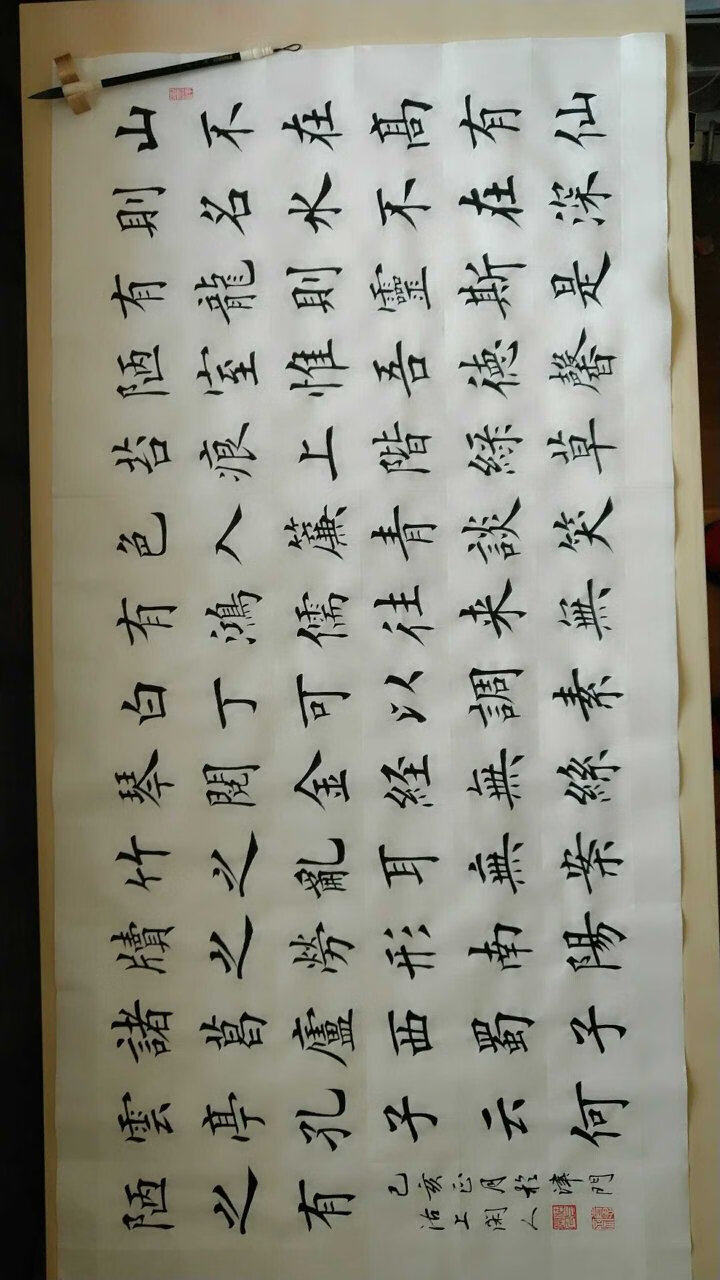 山不在高有仙
則名水不在深
有龍則靈斯是
陋室惟吾徳馨
苔痕上階綠草
色入簾青談笑
有鴻儒往来無
白丁可以調素
琴閱金経無絲
竹之亂耳無案
牘之勞形南陽
諸葛廬西蜀子
雲亭孔子云何
陋之有
己亥正月於津門
沽上閑人